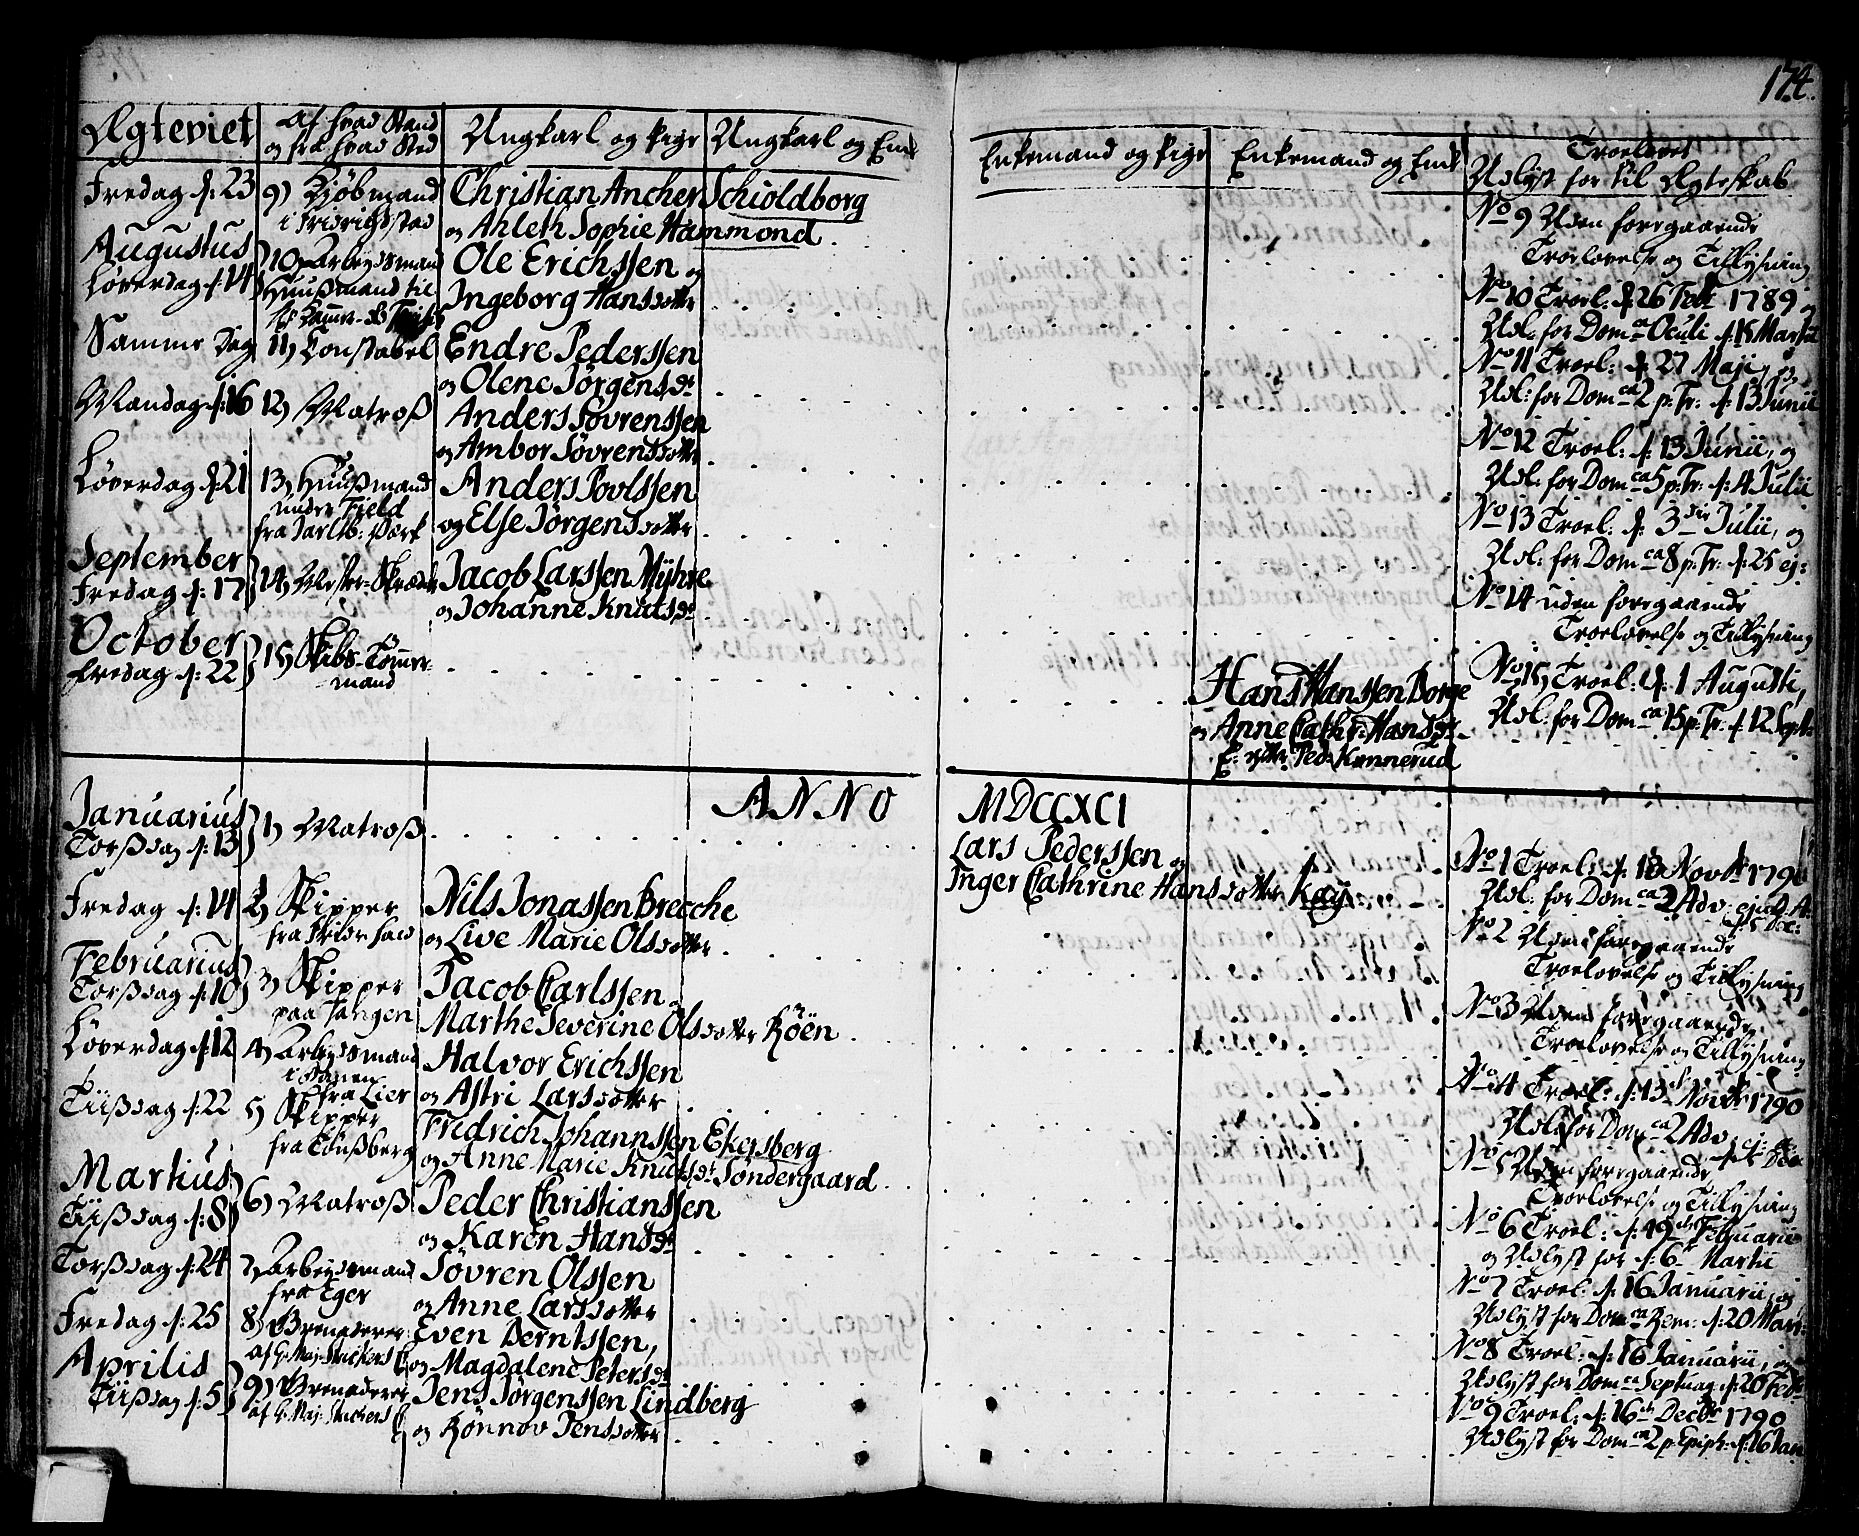 174.
Ægteviet
Af hvad Stand
og fra hvad Sted
Ungkarl og Pige
Ungkarl og Enk
Enkemand og Pige
Enkemand og Enk
Troelovet
Udlyst for til Ægteskab
Fredag d: 23
9) Kjöbmand
i Fridrichstad
Christian Ancher Schioldborg
og Ahleth Sophie Hammond
No 9 Uden foregaaende
Troelovelse og Tillysning
Augustus
Löverdag d: 14
10) Arbeydsmand
Huusmand til
Ole Erichssen og
Ingeborg Hansdotter
No 10 Troel: d. 26 Febr 1789 og
Udl: for Dom ca Oculi d: 15 Martii
Samme Dag
11) Constabel
Endre Pederssen
og Olene Jörgensdr
No 11 Troel: d. 27 Maji, og
Udl: for Dom ca 2 p. Tr. d: 13 Junii
Mandag d: 16
12) Matros
Anders Sövrenssen
og Ambor Sövrensdotter
No 12 Troel: d: 13 Junii, og
Udl: for Dom ca 5 p. Tr. d: 4 Julii
Löverdag d. 21
13) Huusmand
under Field
fra Jarlsb: Værk
Anders Povlssen
og Else Jörgensdotter
No 13 Troel: d. 3die Julii, og
Udl: for Dom ca 8 p. Tr. d: 25 ej:
September
Fredag d: 17
14) Mester-Skræder
Jacob Larssen Myhre
og Johanne Knutsdr
No 14 uden foregaaende
Troelovelse og Tillysning
October
Fredag d: 22
15) Skibs-Tömmer-
mand
Hans Hanssen Borge
og Anne Cathr: Hansdr.
E: efter Ped: Kennerud
No 15) Troel: d: 1 Augusti,
Udl: for Dom ca 15 p. Tr. d: 12 Sept:
ANNO
MDCCXCI
Januarius
Torsdag d: 13
1) Matros
Lars Pederssen og
Inger Cathrine Hansdotter Kay
No 1 Troel: d: 13 Novbr 1790
Udl: for Dom ca 2 Adv: ejusd. A.
d. 5 Dec:
Fredag d: 14
2) Skipper
Nils Jonassen Brecche
og Live Marie Olsdotter
No 2 Uden foregaaende
Troelovelse og Tillysning
Februarius
Torsdag d: 10
3) Skipper
paa Tangen
Jacob Carlssen
Marthe Severine Olsdotter Röen
No 3 Uden foregaaende
Troelovelse og Tillysning
Löverdag d: 12
4) Arbeydsmand
fra Lier
Halvor Erichssen
og Astri Larsdotter
No 4 Troel: d: 13 Novbr 1790
Udl: for Dom ca 2 Adv: ej: a:
d. 5 Dec
Tiisdag d: 22
5) Skipper
fra Tönsberg
Fridrich Johannssen Ekersberg
og Anne Marie Knutsdr. Söndergaard
No 5 Uden foregaaende
Troelovelse og Tillysning
Martius
Tiisdag d: 8
6) Matros
Peder Christianssen
og Karen Hansdr
No 6 Troel: d: 19 Februarii
og Udlyst for d: 6 Martii
Torsdag d: 24
7) Arbeydsmand
fra Eger
Sövren Olssen
og Anne Larsdotter
No 7 Troel: d. 16 Januarii, og
Udlyst for Dom ca Rem: d: 20 Mart:
Fredag d: 25
8) Grenaderer
af G: Maj: Strickers C
Even Berntssen,
og Magdalene Petersdr
No 8 Troel: d: 16 Januarii, og
Udlyst for Dom ca Septuag. d: 20 Febr
Aprilis
Tiisdag d: 5
9) Grenaderer
af G: Maj: Strickers C
Jens Jörgenssen Lindberg
og Rönnov Jensdotter
No 9 Troel: d: 16 Decbr 1790
Udlyst for Dom ca 2 p. Epiph: d: 16 Jan